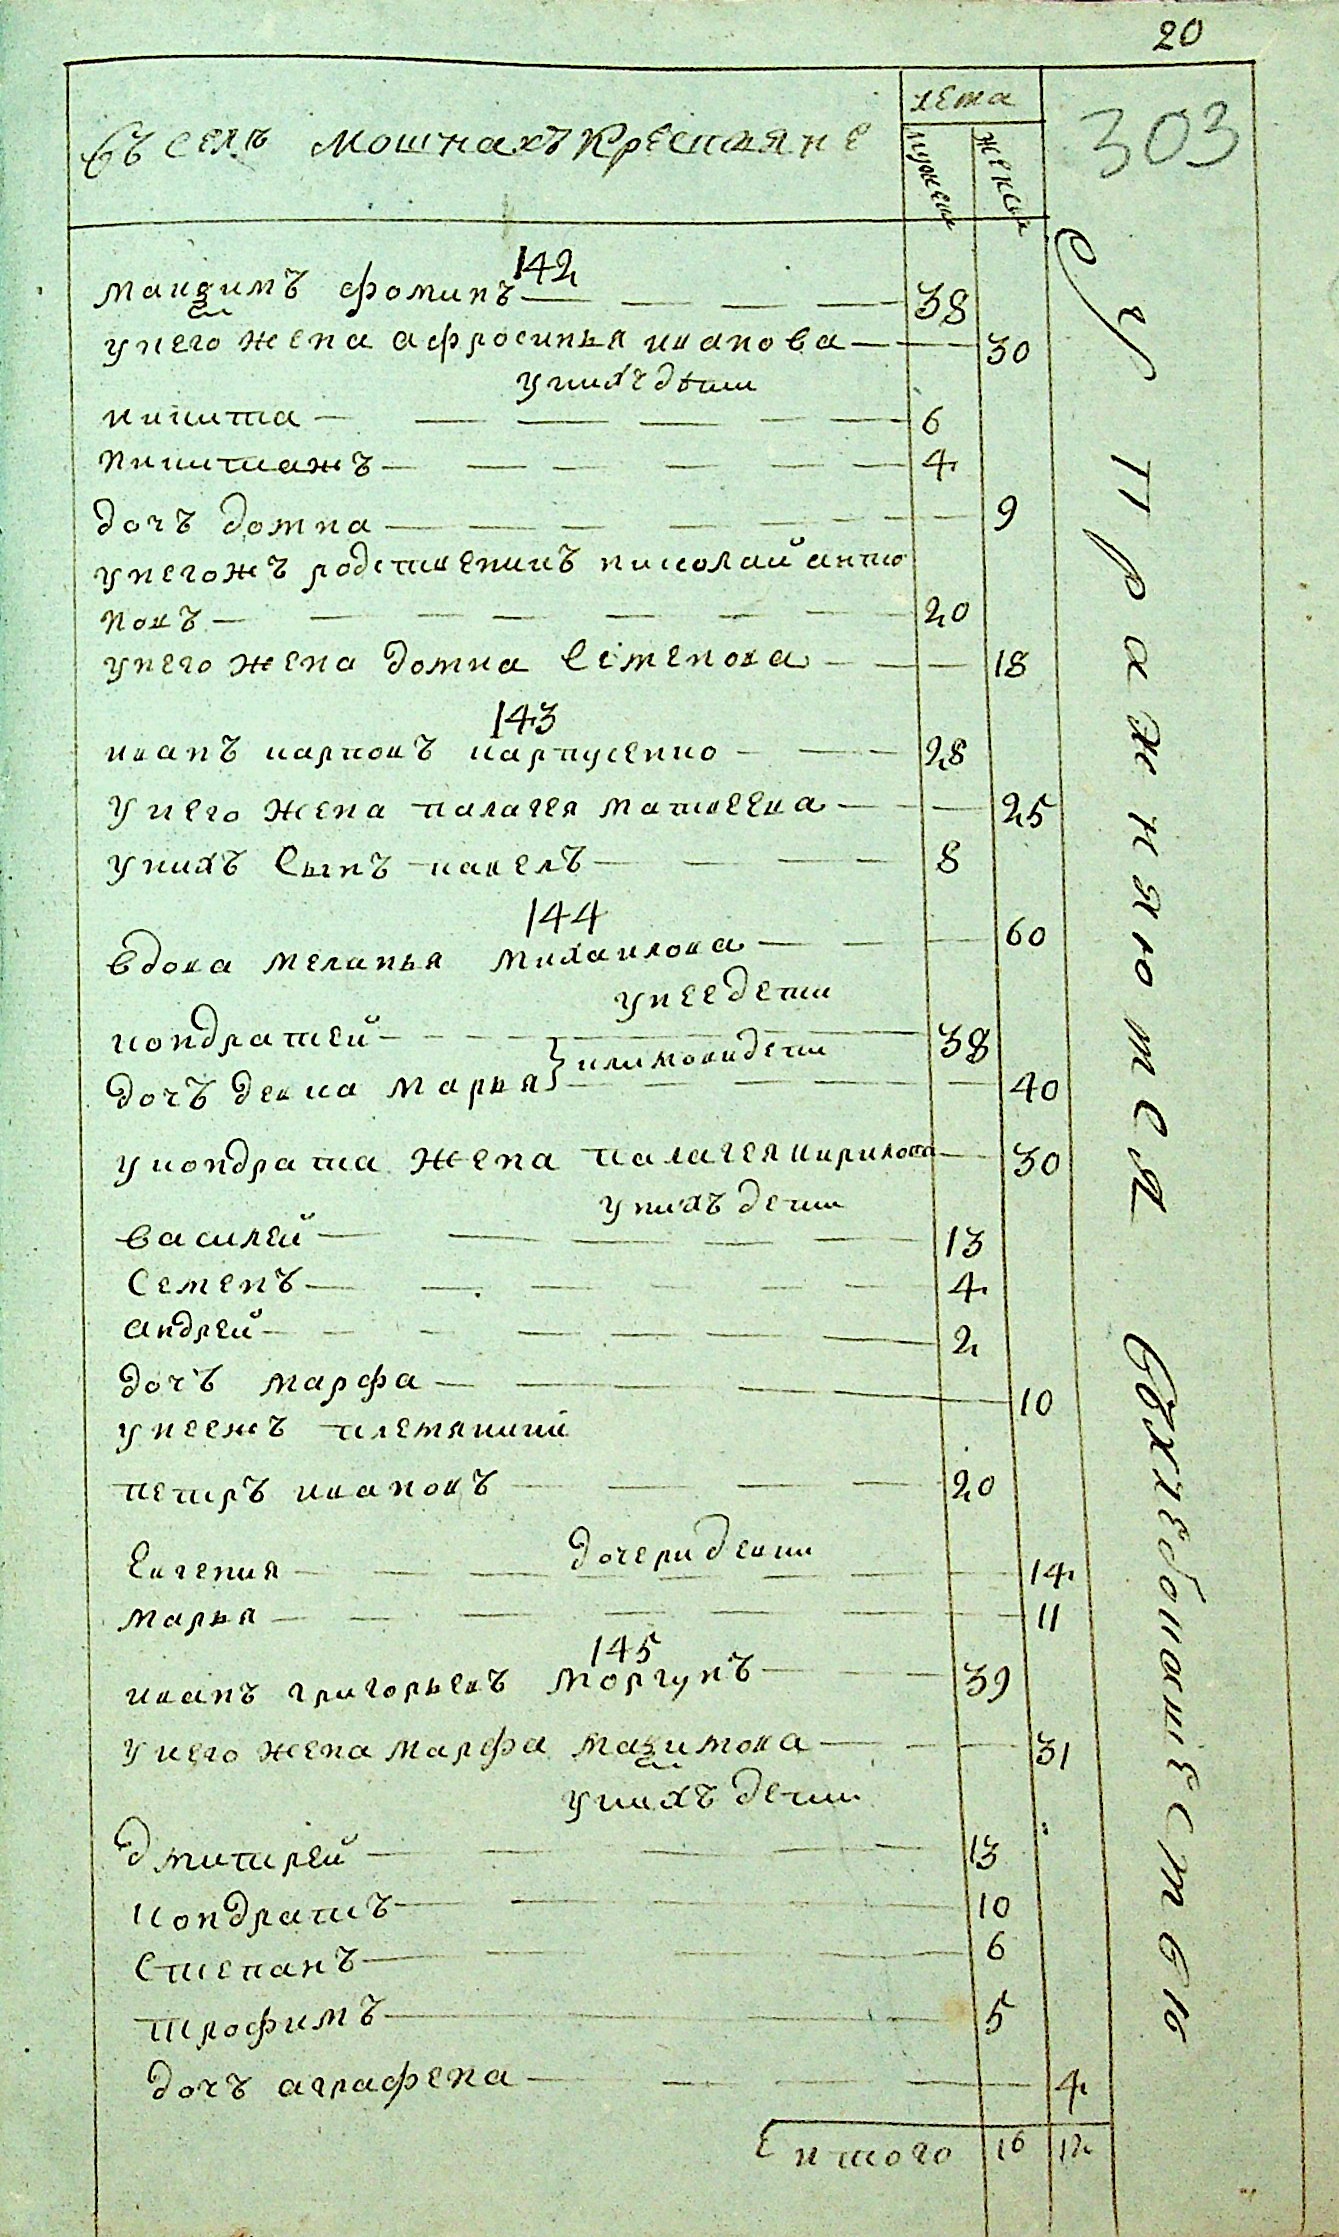 20
303
въ селѣ мошнахъ крестьяне
лета
мужеск
женск
142
максимъ фоминъ 38
унего жена афросинья иванова 30
унихъ дѣти
никита 6
никитажъ 4
дочъ домна 9
унегожъ родственикъ николай анто
новъ 20
унего жена домна семенова 18
143
иванъ карповъ карпусенко 28
унего жена палагея матвеева 25
унихъ сынъ павелъ 8
144
вдова меланья михаилова 60
унее дети
кондратей 38
дочъ девка марья климови дети 40
укондрата жена палагея кирилова 30
унихъ дети
василей 13
семенъ 4
андрей 2
дочъ марфа 10
унеежъ племяники
петръ ивановъ 20
дочери девки
евгения 14
марья 11
145
иванъ григорьевъ моргунъ 39
унего жена марфа максимова 31
унихъ дети
дмитрей 13
кондратъ 10
степанъ 6
трофимъ 5
дочъ аграфена 4
итого 16 12
упражняются вхлебопашестве